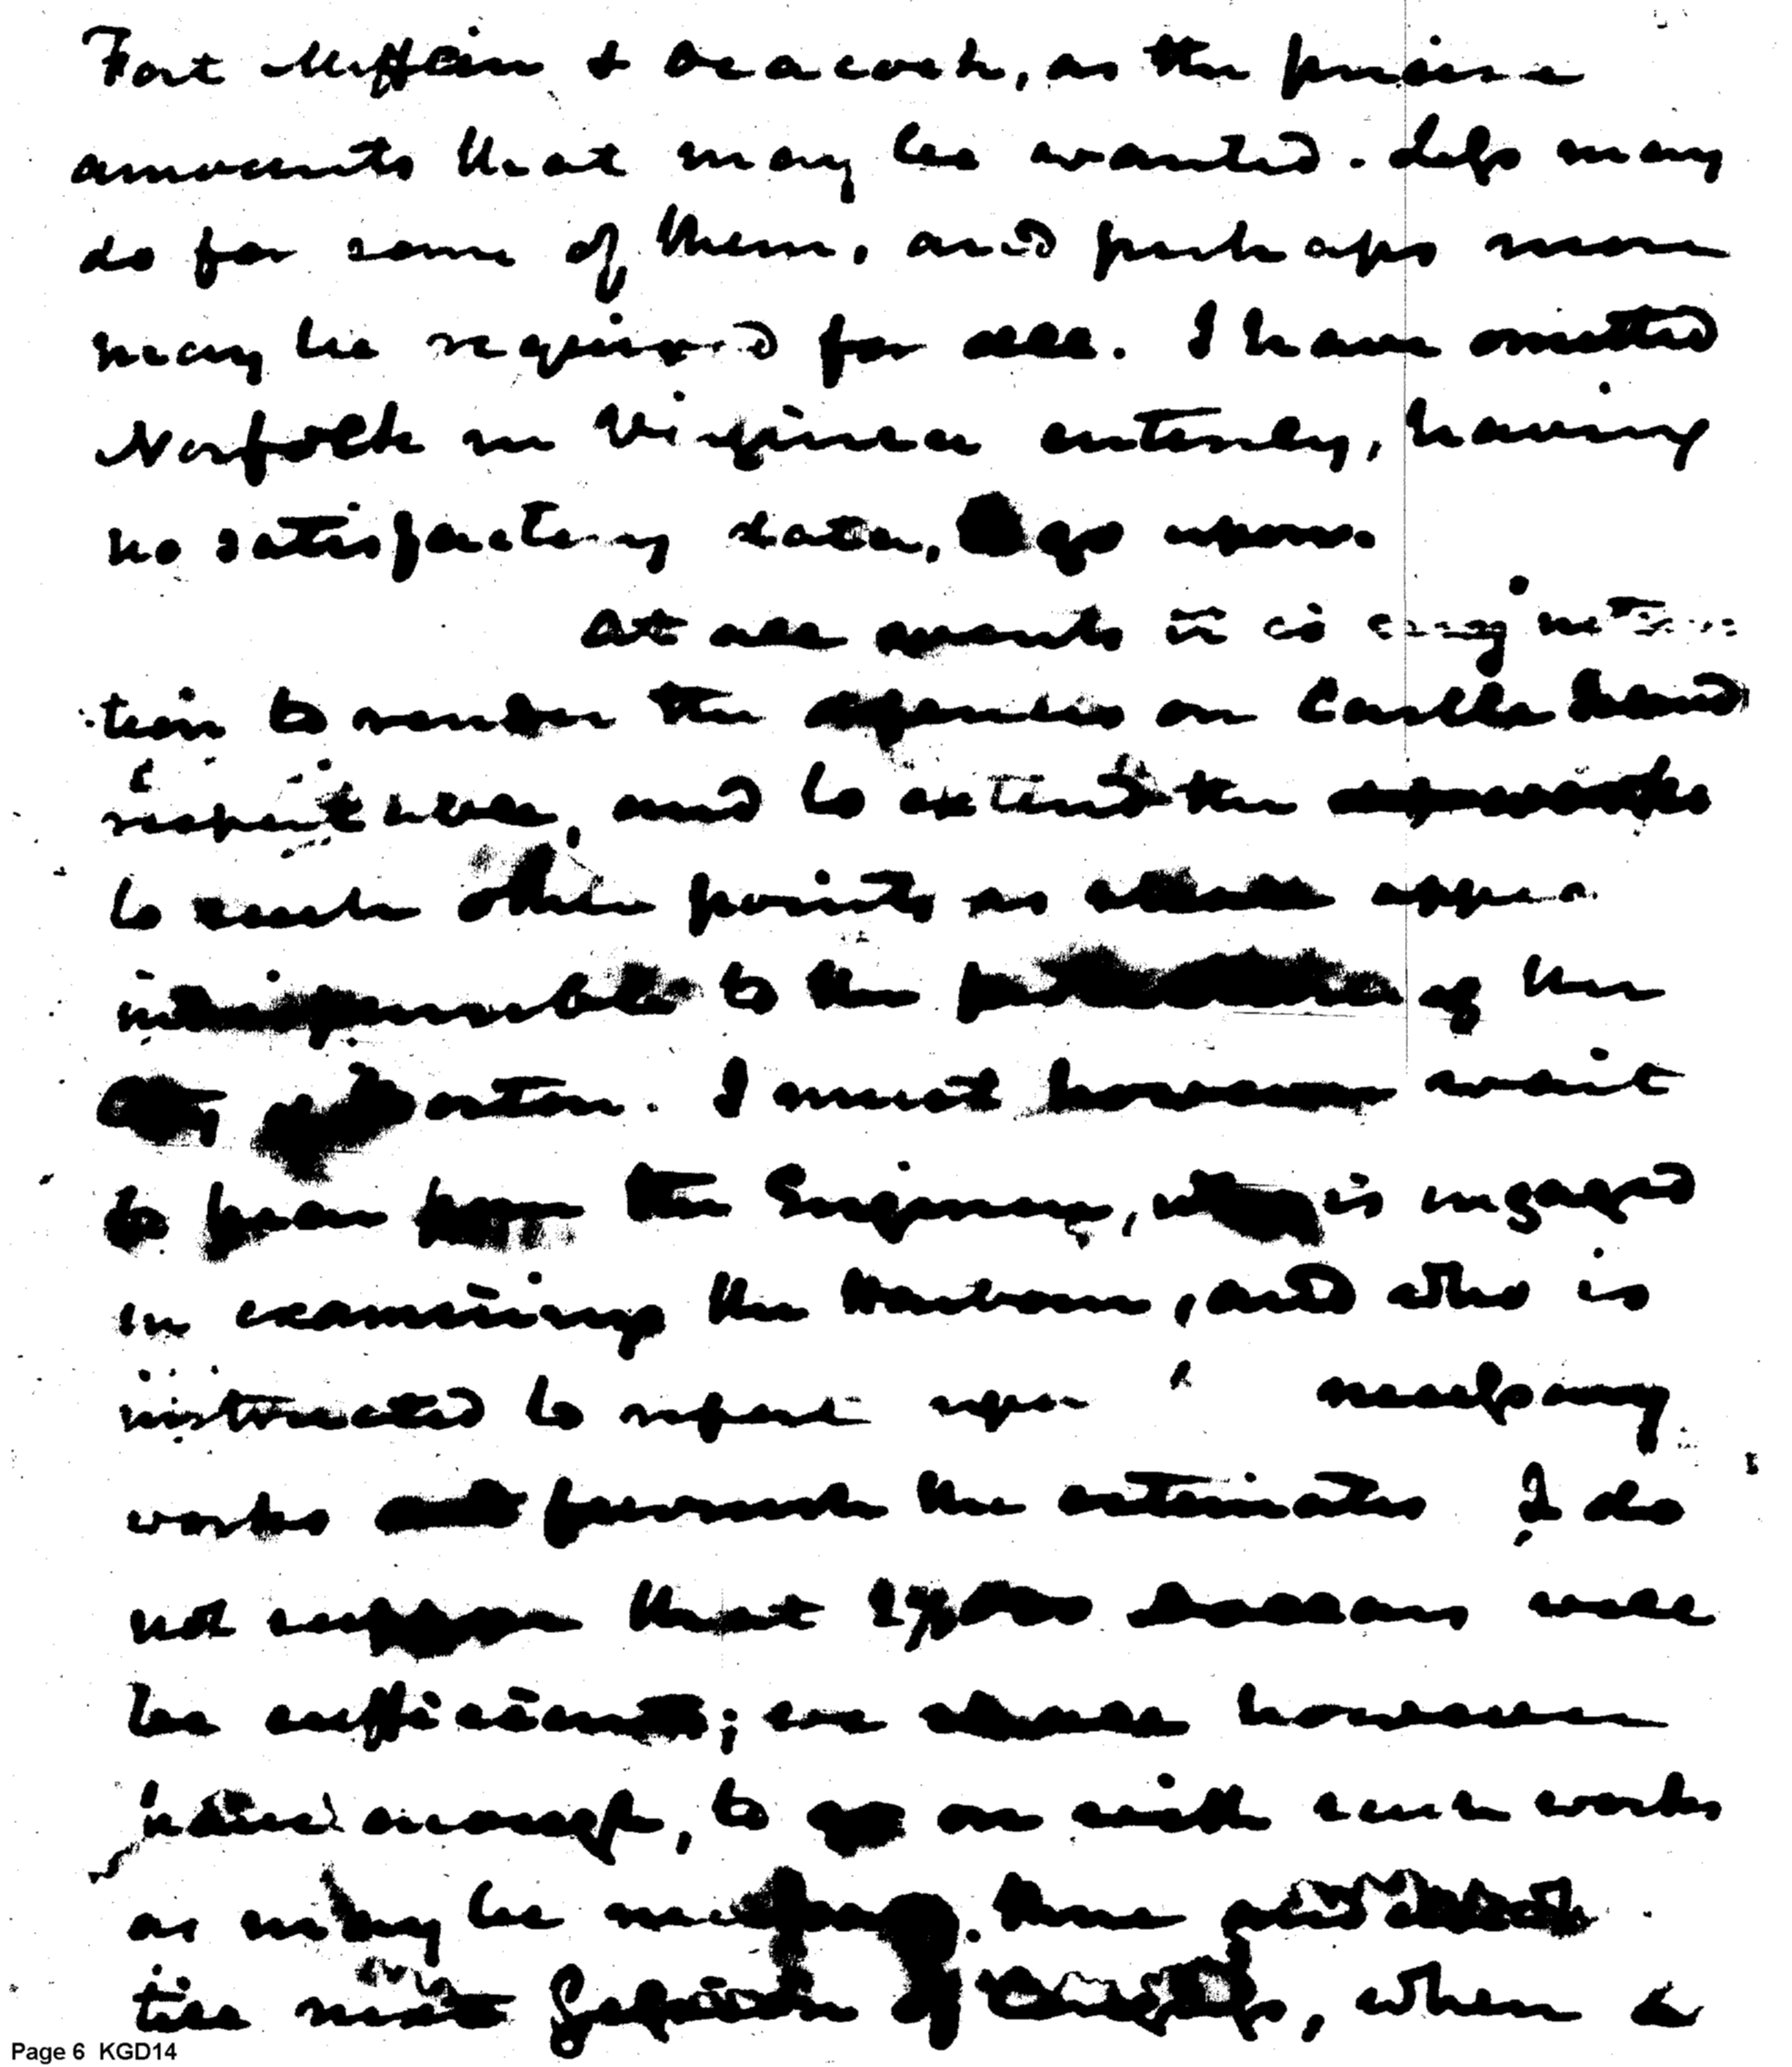 Fort Mifflin & Beacock, as the precise
amounts that may be wanted. Less may
do for some of them, and perhaps more
may be required for all. I have omitted
Norfolk in Virginia entirely, having
no satisfactory data, to go upon.
At all events it is my
to render the on Castle Island
respectable, and to extend the
to such other points as shall appear
indispensable to the protection of the
of Boston. I must however wait
to hear from the Engineer, who is engaged
in examining the Harbour, and who is
instructed to report upon necessary
works and furnish the estimates I do
not suppose that dollars will
be sufficient; we shall however
have enough, to go on with such works
as may be necessary. from
till next Session of Congress, when a
Page 6 KGD14